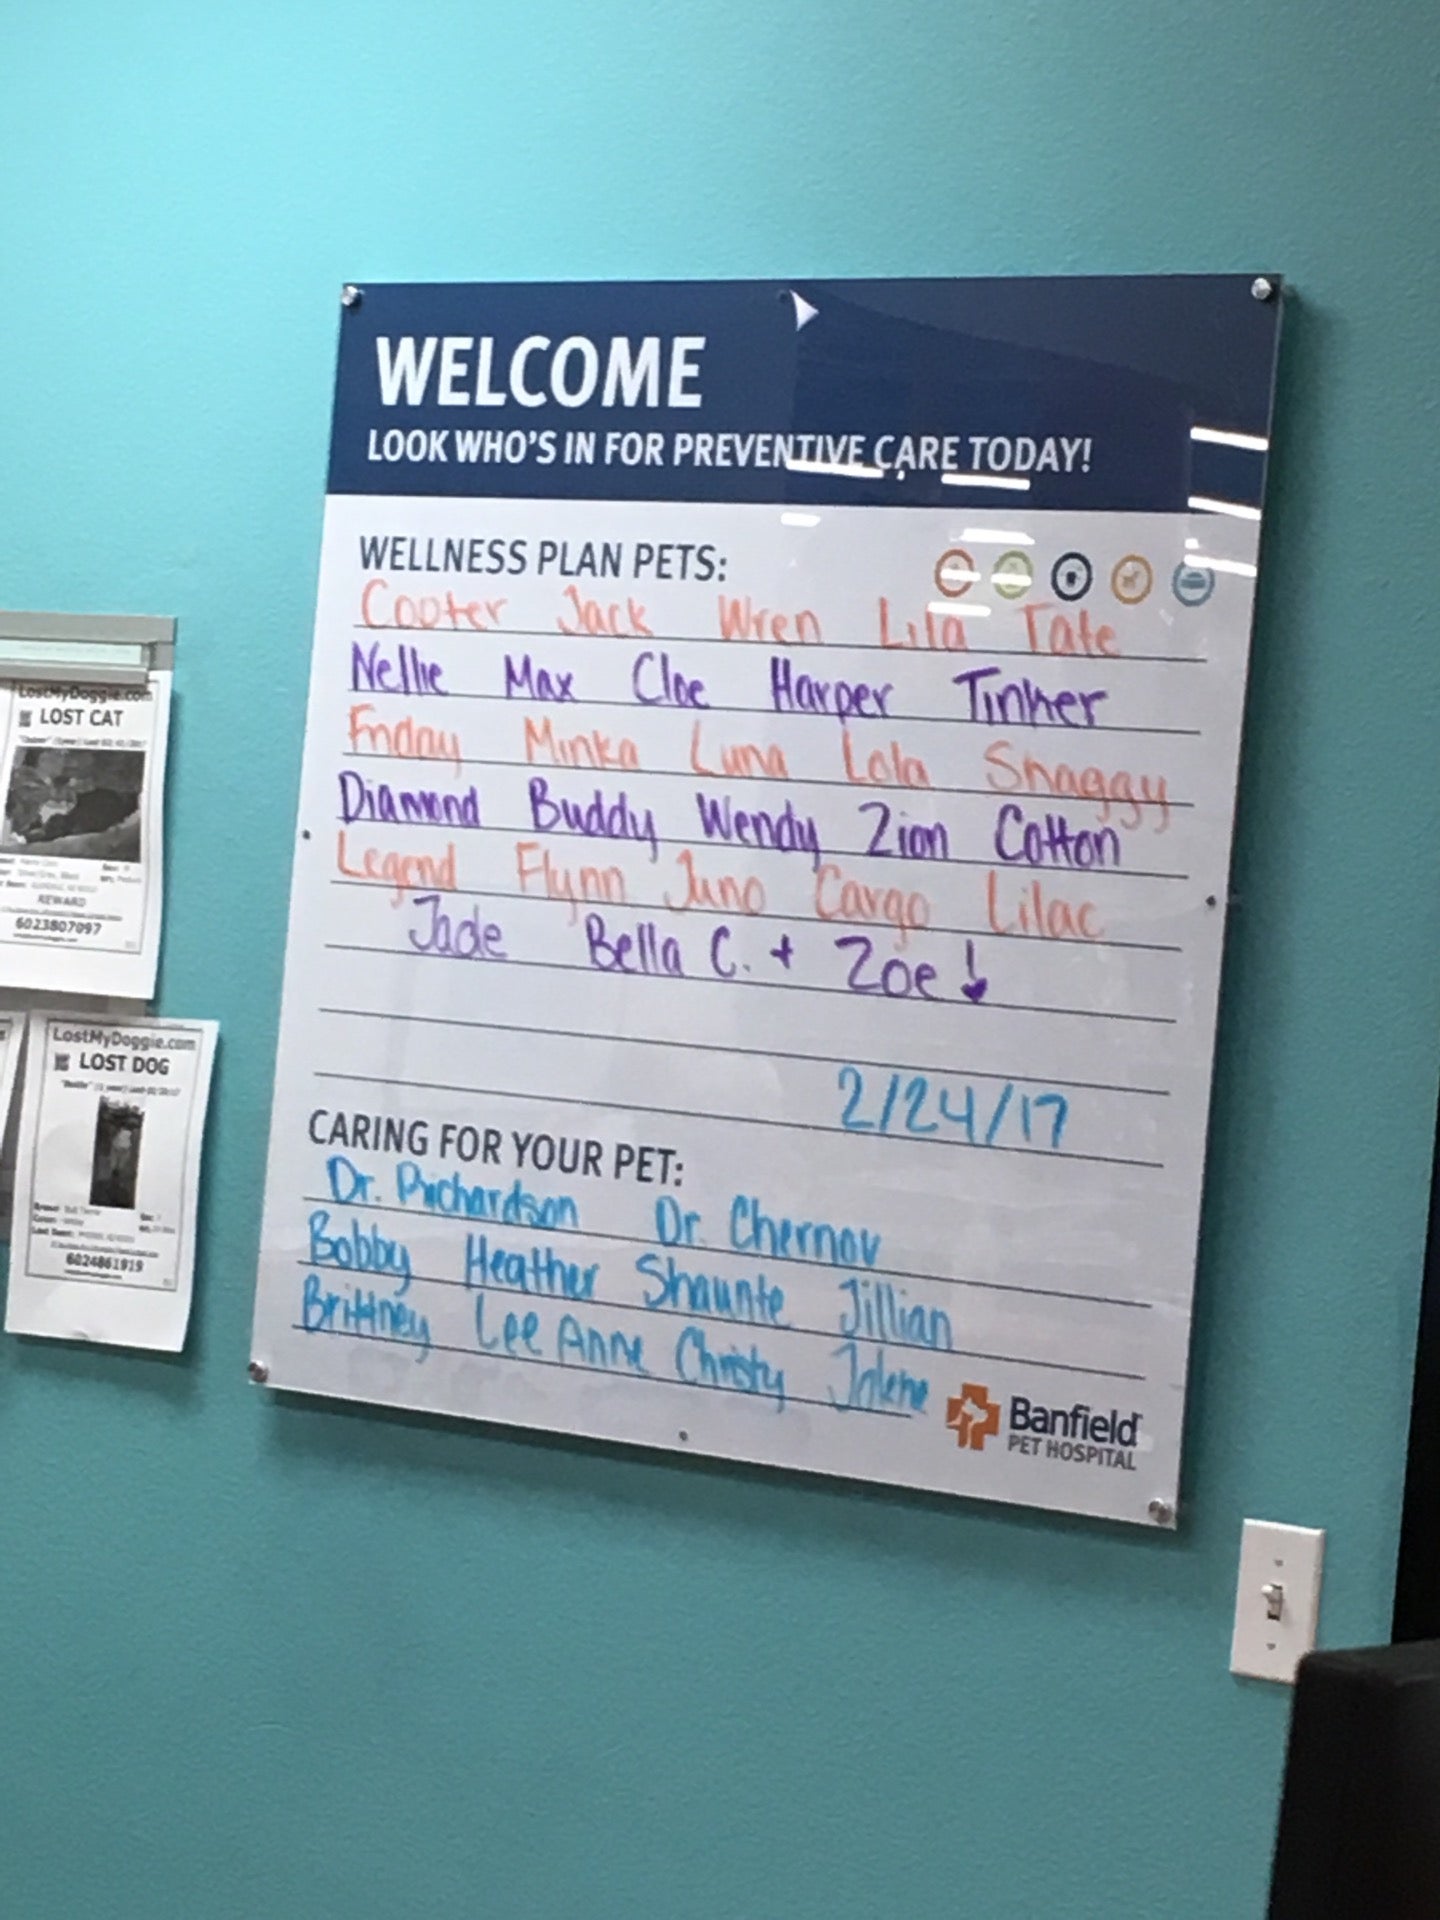 WELCOME
LOOK WHO'S IN FOR PREVENTIVE CARE TODAY!
WELLNESS PLAN PETS:
Cooter Jack Wren Lila Tate
Nellie Max Cloe Harper Tinker
Friday Minka Luna Lola Shaggy
Diamond Buddy Wendy Zion Cotton
Legend Flynn Juno Cargo Lilac
Jade Bella C. + Zoe!
2/24/17
CARING FOR YOUR PET:
Dr. Richardson Dr. Chernov
Bobby Heather Shaunte Jillian
Brittney LeeAnne Christy Jolene
Banfield
PET HOSPITAL
LostMyDoggie.com
LOST CAT
REWARD
6023807097
LostMyDoggie.com
LOST DOG
6024861919